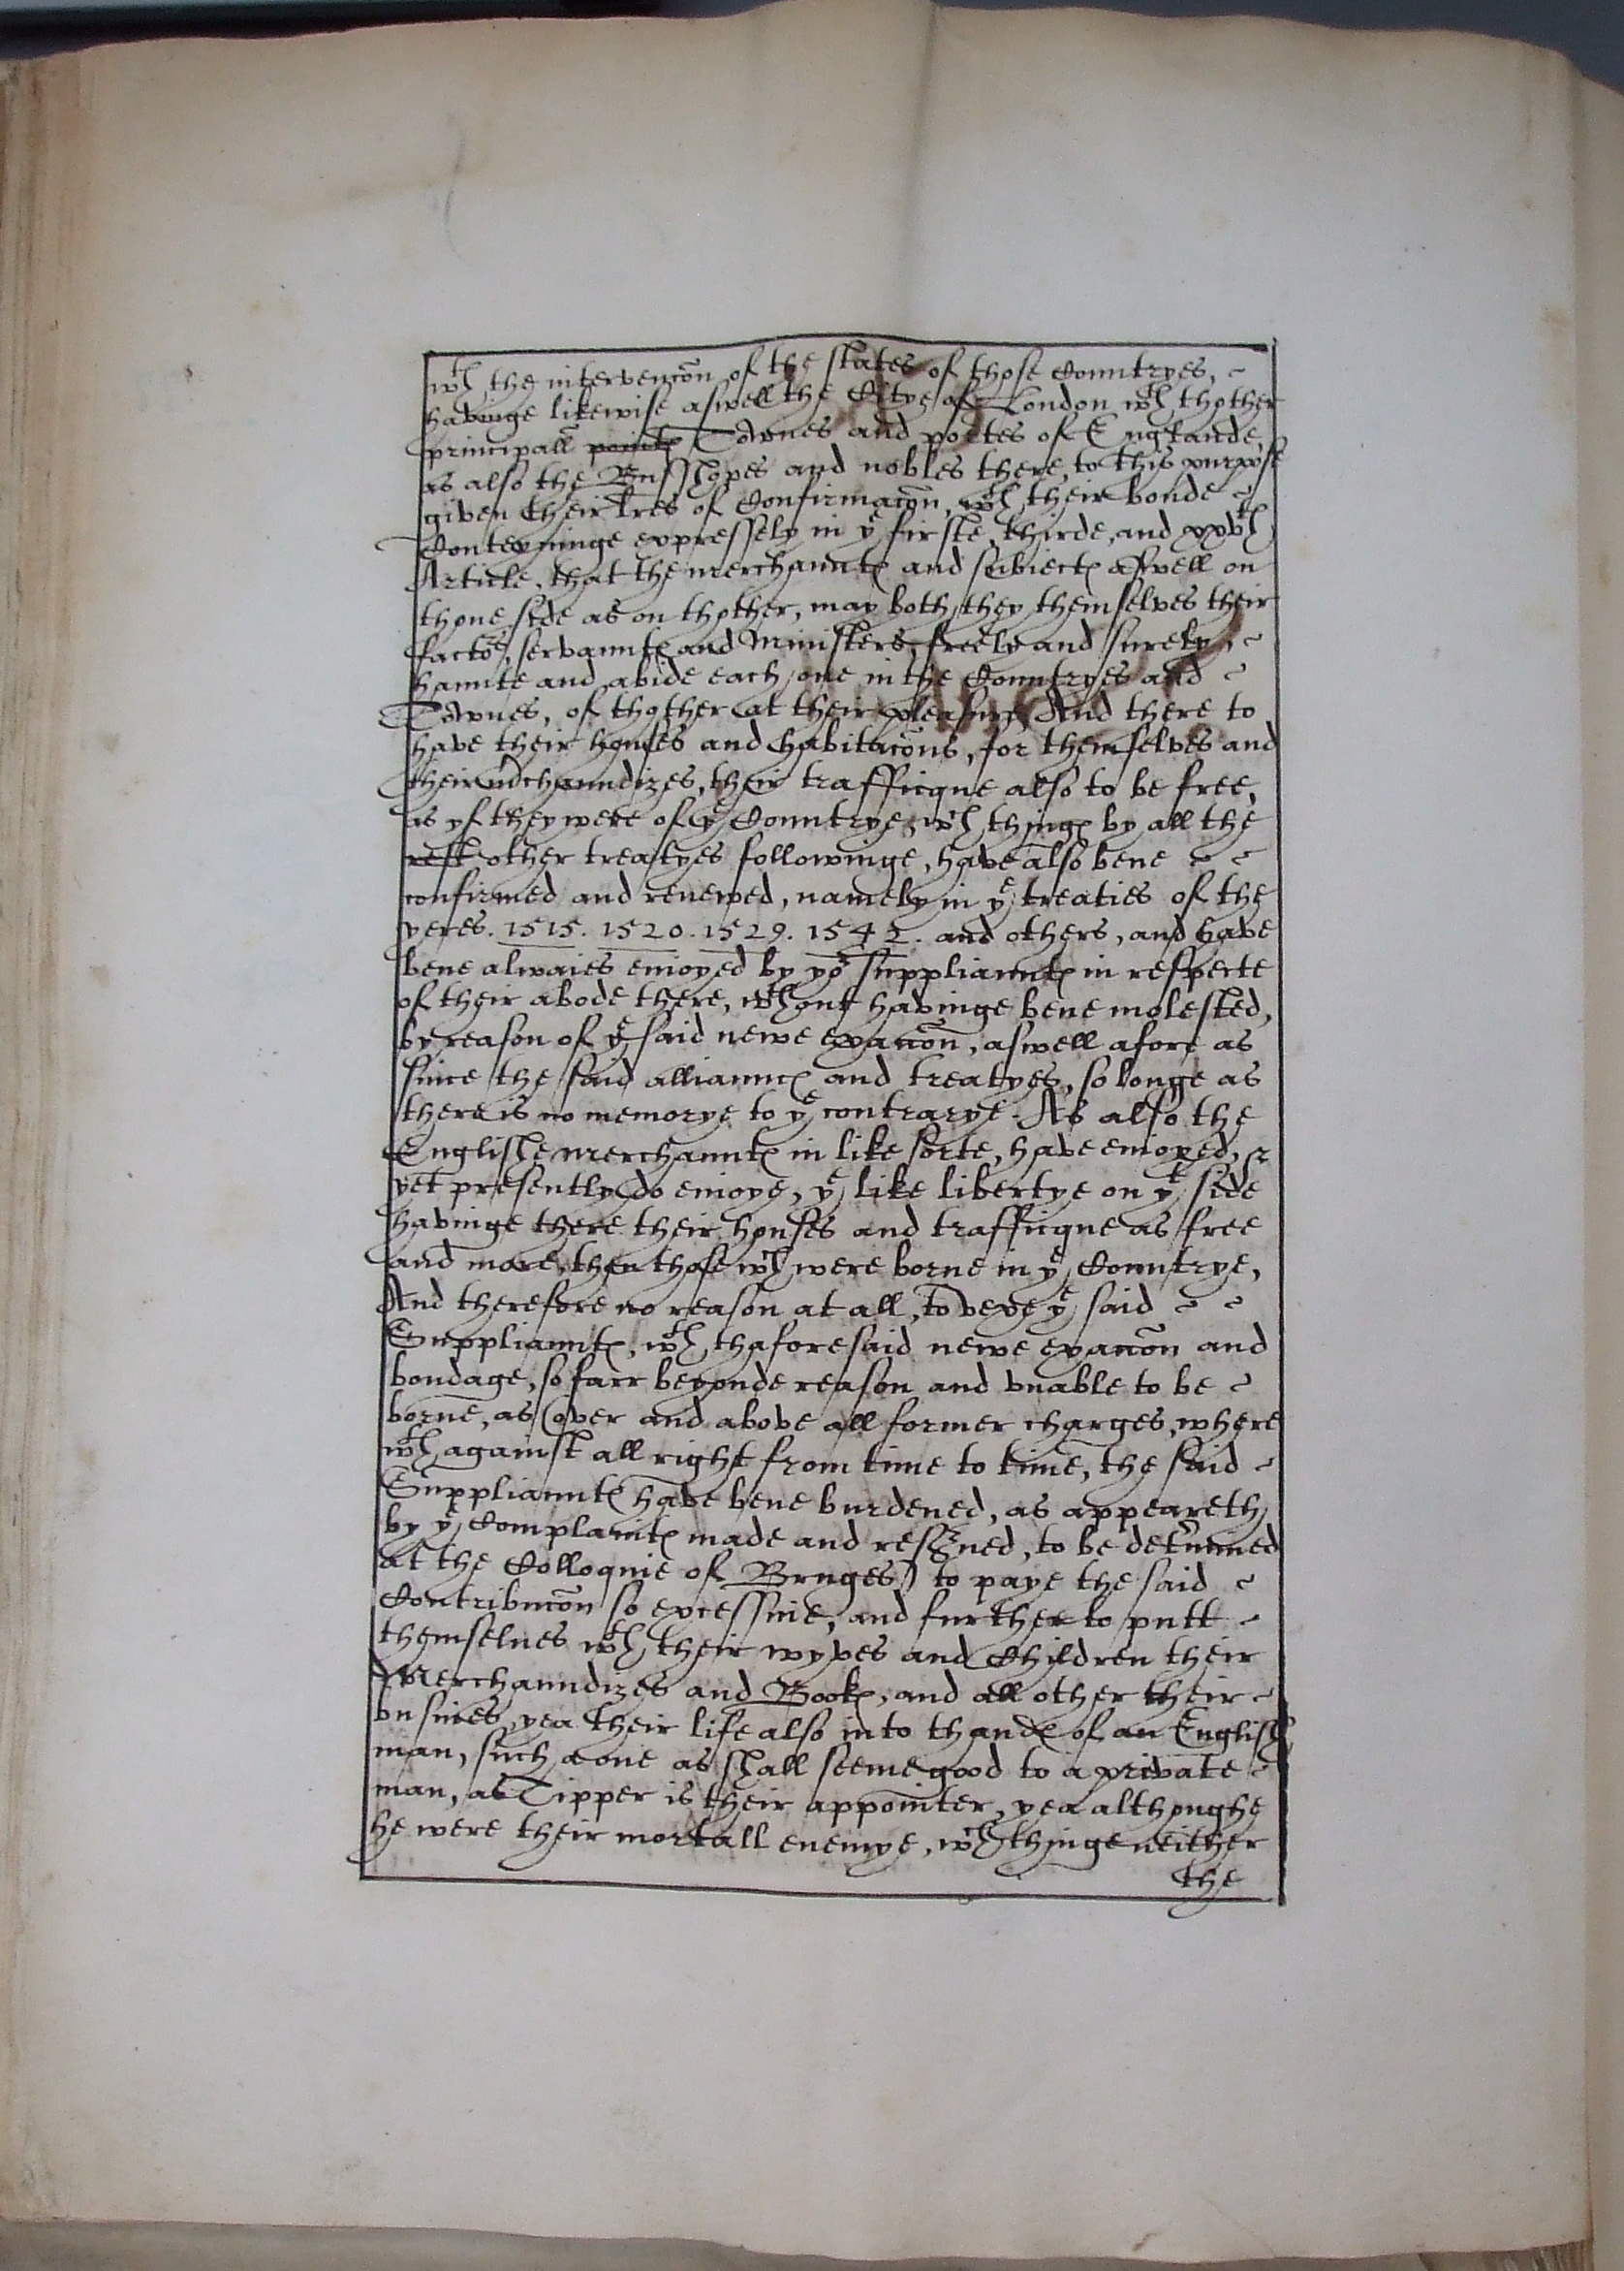 wth the intervencōn of the states of those Countryes, ~
havinge likewise aswell the Cittye of London wth thother
principall points Townes and portes of Englande,
as also the Busshopes and nobles there, to this purpose
given their l̃res of Confirmacōn, wth their bonde ~
Conteyninge expressely in ye firste, thirde, and xxvth
Article, that the merchauntes and subiectes aswell on
thone side as on thother, may both they themselves their
factors, servauntes and Ministers, freely and surely, ~
haunte and abide each one in the Countryes and ~
Townes, of thother at their pleasure And there to
have their houses and habitacōns, for themselves and
their m̃chaundizes, their trafficque also to be free,
as yf they were of ye Countrye, wch thinges by all the
rest other treatyes followinge, have also bene ~ ~
confirmed and renewed, namely in ye treaties of the
yeres. 1515. 1520. 1529. 1542. and others, and have
bene alwaies enioyed by yor suppliauntes in respecte
of their abode there, wthout havinge bene molested,
by reason of ye said newe exacōn, aswell afore as
since the said alliaunces and treatyes, so longe as
there is no memorye to ye contrarye. As also the
Englishe merchauntes in like sorte, have enioyed, &
yet presently do enioye, ye like libertye on yt side
havinge there their houses and trafficque as free
and more, then those wch were borne in ye Countrye,
And therefore no reason at all, to vexe ye said ~ ~
Suppliauntes, wth thaforesaid newe exacōn and
bondage, so farr beyonde reason and vnable to be ~
borne, as (over and above all former charges, where
wth against all right from time to time, the said ~
Suppliauntes have bene burdened, as appeareth
by ye Complaintes made and resẽrued, to be det̃mined
at the Colloquie of Bruges) to paye the said ~
Contribucōn so excessiue, and further to putt ~
themselues wth their wyves and Children their
Merchaundizes and Bookes, and all other their ~
busines, yea their life also into thandes of an English
man, such a one as shall seeme good to a private ~
man, as Tipper is their appointer, yea althoughe
he were their mortall enemye, wch thinge neither
the